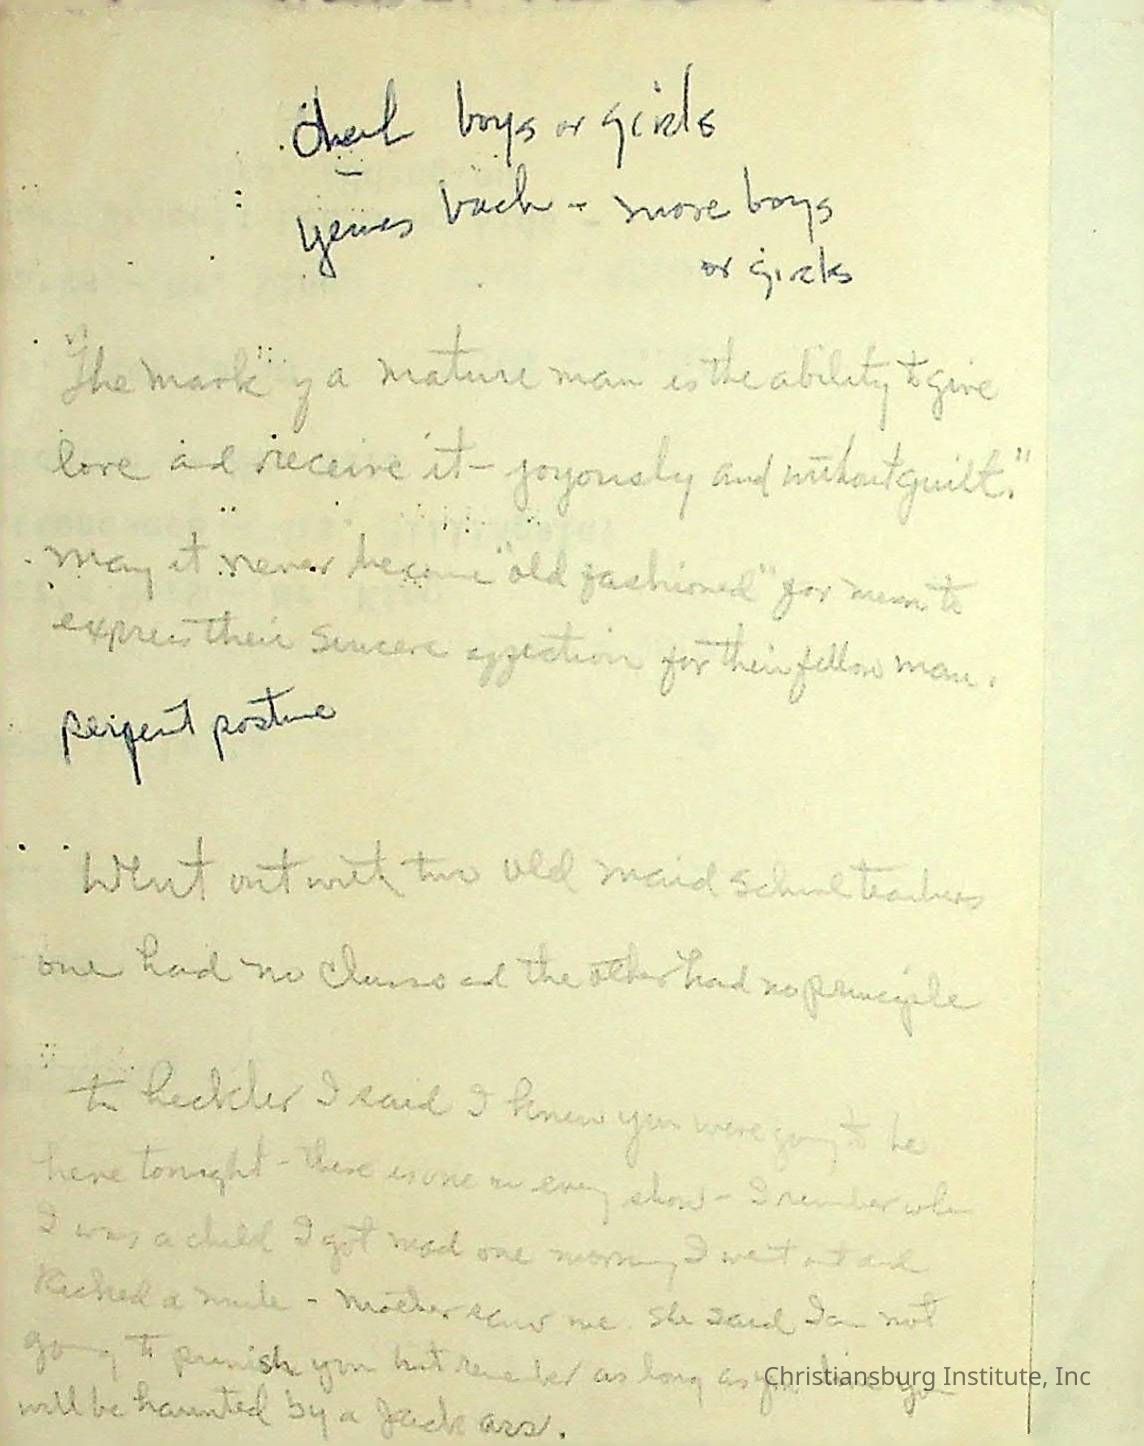 boys or girls
years back - more boys
or girls
"The mark" of a mature man is the ability to give
love and receive it - joyously and without guilt."
May it never become "old fashioned" for men to
express their sincere affection for their fellow man.
posture
Went out with two old maid school teachers
one had no class and the other had no principle
to heckler I said I knew you were going to be
here tonight - there is one in every show - I remember when
I was a child I got mad one morning I went out and
Kicked a mule - Mother saw me. She said I am not
going to punish you but remember as long as you live you
will be haunted by a Jack ass.
Christiansburg Institute, Inc